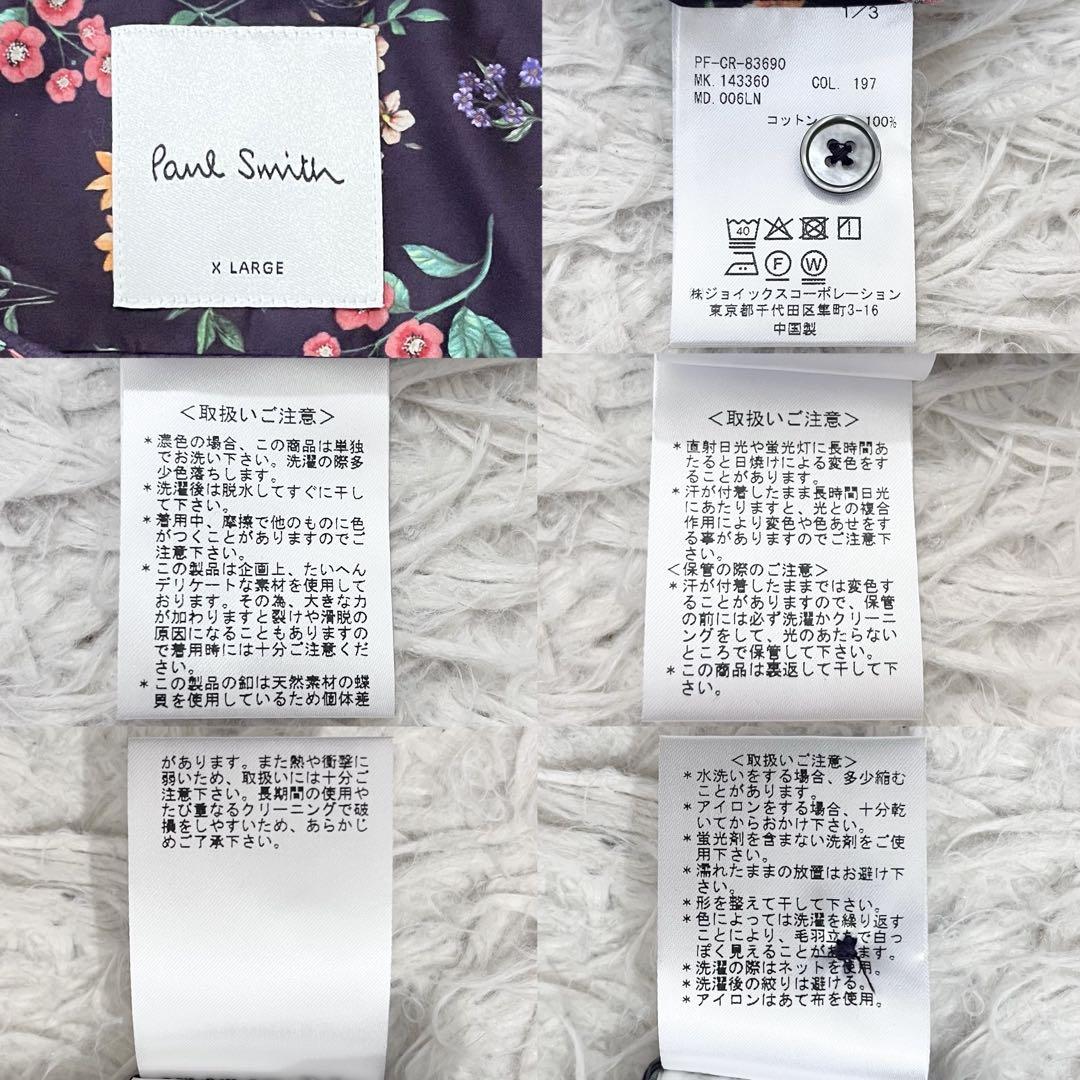 Paul Smith
X LARGE
1/3
PF-CR-83690
MK. 143360 COL. 197
MD. 006LN
コットン 100%
40
F W
㈱ジョイックスコーポレーション
東京都千代田区隼町3-16
中国製
＜取扱いご注意＞
*濃色の場合、この商品は単独
でお洗い下さい。洗濯の際多
少色落ちします。
*洗濯後は脱水してすぐに干し
て下さい。
*着用中、摩擦で他のものに色
がつくことがありますのでご
注意下さい。
*この製品は企画上、たいへん
デリケートな素材を使用して
おります。その為、大きな力
が加わりますと裂けや滑脱の
原因になることもありますの
で着用時には十分ご注意くだ
さい。
*この製品の釦は天然素材の蝶
貝を使用しているため個体差
＜取扱いご注意＞
*直射日光や蛍光灯に長時間あ
たると日焼けによる変色をす
ることがあります。
*汗が付着したまま長時間日光
にあたりますと、光との複合
作用により変色や色あせをす
る事がありますのでご注意下
さい。
＜保管の際のご注意＞
*汗が付着したままでは変色す
ることがありますので、保管
の前には必ず洗濯かクリーニ
ングをして、光のあたらない
ところで保管して下さい。
*この商品は裏返して干して下
さい。
があります。また熱や衝撃に
弱いため、取扱いには十分ご
注意下さい。長期間の使用や
たび重なるクリーニングで破
損をしやすいため、あらかじ
めご了承下さい。
＜取扱いご注意＞
*水洗いをする場合、多少縮む
ことがあります。
*アイロンをする場合、十分乾
いてからおかけ下さい。
*蛍光剤を含まない洗剤をご使
用下さい。
*濡れたままの放置はお避け下
さい。
*形を整えて干して下さい。
*色によっては洗濯を繰り返す
ことにより、毛羽立ちで白っ
ぽく見えることがあります。
*洗濯の際はネットを使用。
*洗濯後の絞りは避ける。
*アイロンはあて布を使用。